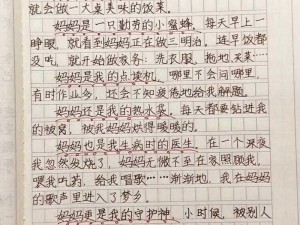 就会做一大桌美味的饭菜。
妈妈是一只勤劳的小蜜蜂。每天早上一
睁眼，就看到妈妈正在做三明治。连早饭都
没吃，就开始做家务：洗衣服、拖地、买菜……
妈妈是我的点读机。哪里不会问哪里，
有时作业多，还会不知疲倦地给我解题。
妈妈还是我的热水袋。每天都要钻进我
的被窝，被我妈妈烘得暖暖的。
妈妈也是我生病时的医生。在一个深夜
我忽然发烧了，妈妈无微不至在家照顾我，
喂我吃药，给我唱歌……渐渐地，我在妈妈
的歌声里进入了梦乡。
妈妈更是我的守护神。小时候，被别人